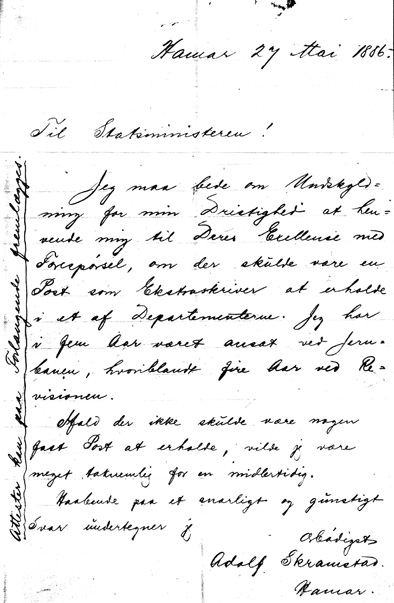 Hamar 27 Mai 1886.
Til Statsministeren!
Jeg maa bede om Undskyld=
ning for min Dristighed at hen=
vende mig til Deres Exellense med
Forespörsel, om der skulde være en
Post som Ekstraskriver at erholde
i et af Departementerne. Jeg har
i fem Aar været ansat ved Jern=
banen, hvoriblandt fire Aar ved Re=
visionen.
Ifald der ikke skulde være nogen
fast Post at erholde, vilde jeg være
meget taknemlig for en midlertidig.
Haabende paa et snarligt og gunstigt
Svar undertegner jeg
Ærbödigst
Adolf Skramstad.
Hamar.
Attester kan paa Forlangende fremlægges.